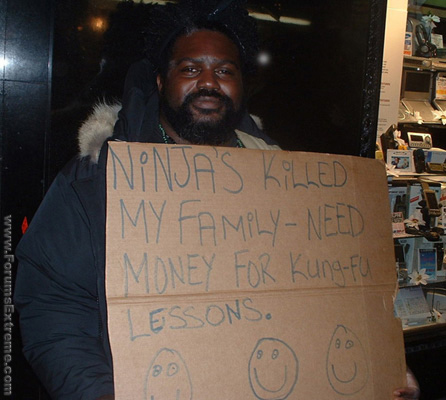 NiNJA'S KiLLED
MY FAMiLY - NEED
MONEY FOR KUNG-FU
LESSONS.
www.ForumsExtreme.com